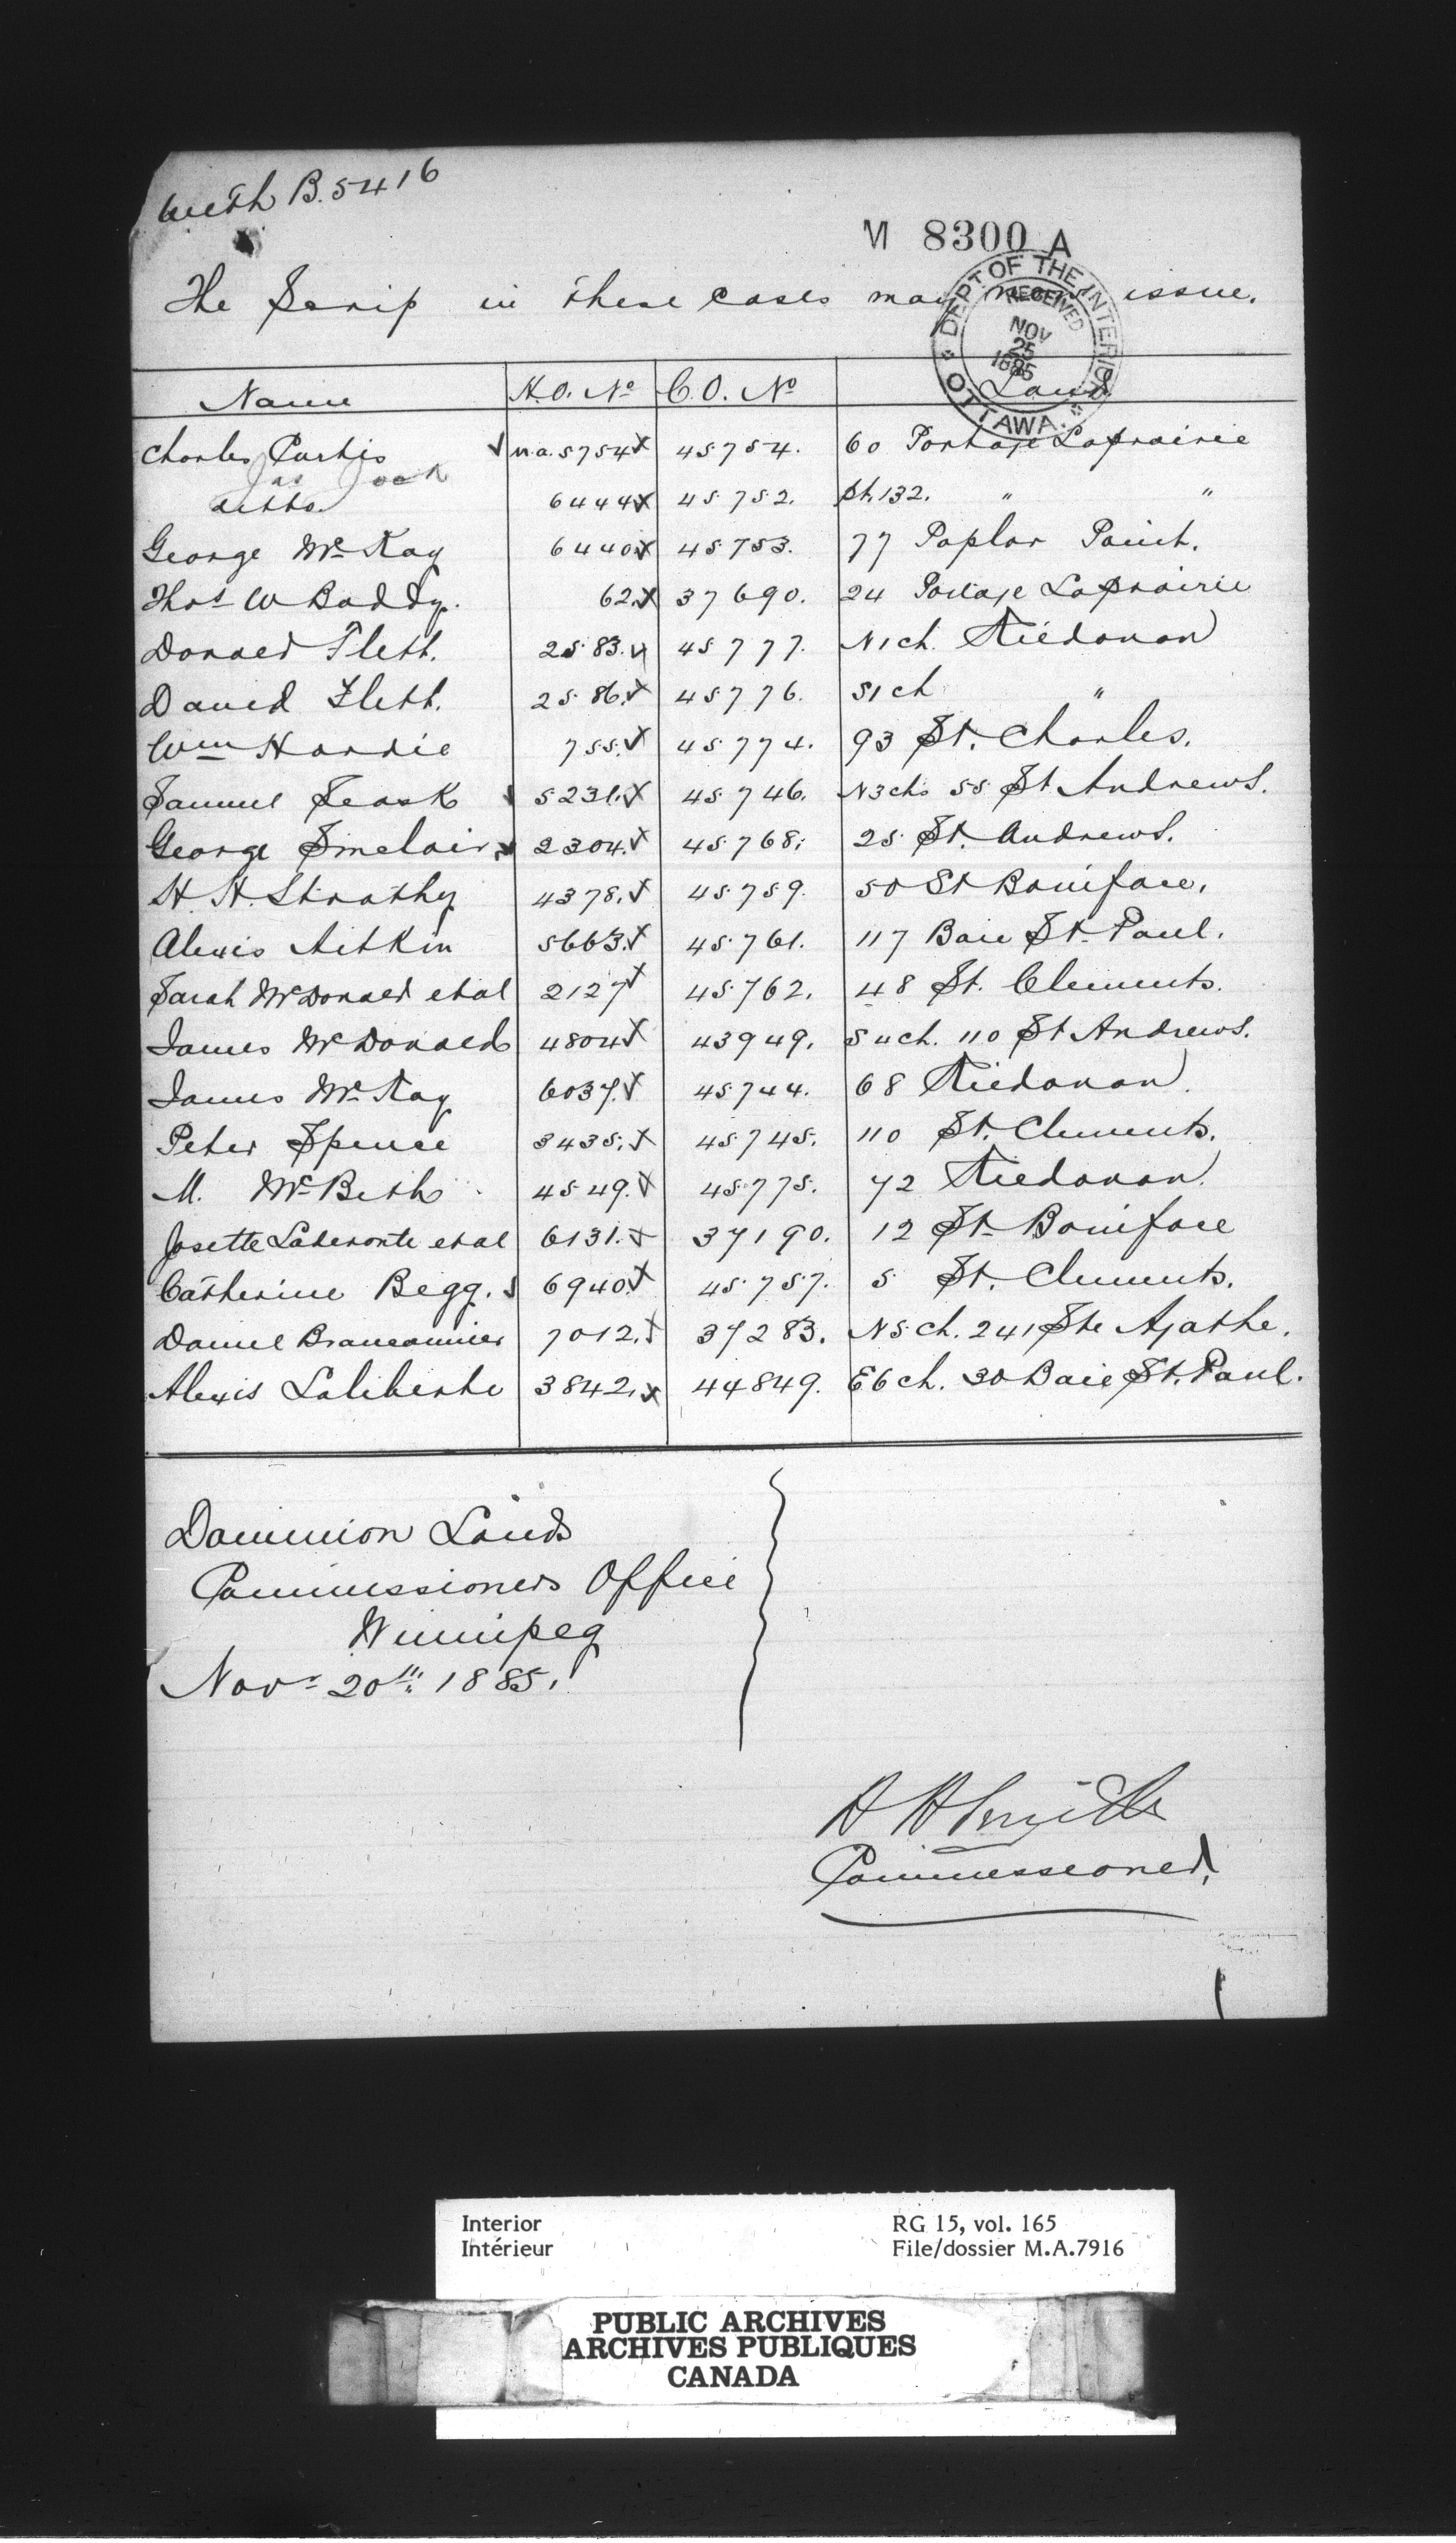 with B. 5416
M 8300 A
DEPT OF THE INTERIOR
RECEIVED
NOV
25
1885
OTTAWA.
The Scrip in these cases may now issue.
Name H.O. No C.O. No Land
Charles Curtis m.a. 5754 45754. 60 Portage Laprairie
Jas Jock
ditto. 6444 45752. pt. 132. " "
George Mc Kay 6440. 45753. 77 Poplar Point.
Thos W Boddy. 62. 37690. 24 Portage Laprairie
Donald Flett. 2583. 45777. N1ch. Kildonan
David Flett. 2586. 45776. S1ch "
Wm Hardie 755. 45774. 93 St. Charles.
Samuel Leask 5231. 45746. N3chs 55 St Andrews.
George Sinclair 2304. 45768. 25 St. Andrews.
H. H. Strathy 4378. 45759. 50 St Boniface.
Alexis Aitkin 5663. 45761. 117 Baie St. Paul.
Sarah McDonald et al 2127 45762. 48 St. Clements.
James McDonald 4804 43949. S 4ch. 110 St Andrews.
James Mc Kay 6037. 45744. 68 Kildonan.
Peter Spence 3435. 45745. 110 St. Clements.
M. Mc Beth 4549. 45775. 72 Kildonan.
Josette Laderoute et al 6131. 37190. 12 St. Boniface
Catherine Begg. 6940. 45757. 5 St. Clements.
Daniel Branconnier 7012. 37283. N5ch. 241 Ste Agathe.
Alexis Laliberte 3842. 44849. E6ch. 30 Baie St. Paul.
Dominion Lands
Commissioners Office
Winnipeg
Novr 20th 1885.
H H Smith
Commissioner.
Interior RG 15, vol. 165
Intérieur File/dossier M.A.7916
PUBLIC ARCHIVES
ARCHIVES PUBLIQUES
CANADA